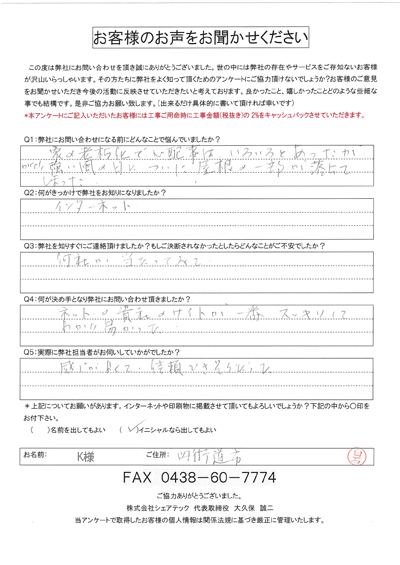 お客様のお声をお聞かせください
この度は弊社にお問い合わせを頂き誠にありがとうございました。世の中には弊社の存在やサービスをご存知ないお客様
が沢山いらっしゃいます。その方たちに弊社をよく知って頂くためのアンケートにご協力頂けないでしょうか?お客様のご意見
をお聞かせいただき今後の活動に反映させていただきたいと考えております。良かったこと、嬉しかったことどのような些細な
事でも結構です。是非ご協力お願い致します。(出来るだけ具体的に書いて頂ければ幸いです)
*本アンケートにご記入いただいたお客様には工事ご用命時に工事金額(税抜き)の2%をキャッシュバックさせていただきます。
Q1:弊社にお問い合わせになる前にどんなことで悩んでいましたか?
家の老朽化で心配事はいろいろとあったが
強い風の日についに屋根の一部が落ちて
しまった
Q2:何がきっかけで弊社をお知りになりましたか?
インターネット
Q3:弊社を知りすぐにご連絡頂けましたか?もしご決断されなかったとしたらどんなことがご不安でしたか?
何社か当たってみて
Q4:何が決め手となり弊社にお問い合わせ頂きましたか?
ネットの貴社のサイトが一番スッキリして
わかり易かった
Q5:実際に弊社担当者がお伺いしていかがでしたか?
感じがよくて信頼できそうだった
*上記についてお願いがあります。インターネットや印刷物に掲載させて頂いてもよろしいでしょうか?下記の中から〇印を
お付下さい。
( )名前を出してもよい (✓)イニシャルなら出してもよい
お名前: K様 ご住所: 四街道市
FAX 0438-60-7774
ご協力ありがとうございました。
株式会社シェアテック 代表取締役 大久保 誠二
当アンケートで取得したお客様の個人情報は関係法規に基づき厳正に管理いたします。